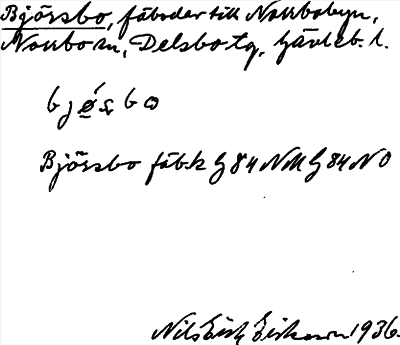 Björsbo, fäbodar till Norrbobyn,
Norrbo sn, Delsbo tg, Gävleb. l.
bjǿ̱s̨bo
Björsbo fäb.k G 84 NM G 84 NO
Nils Erik Eriksson 1936.